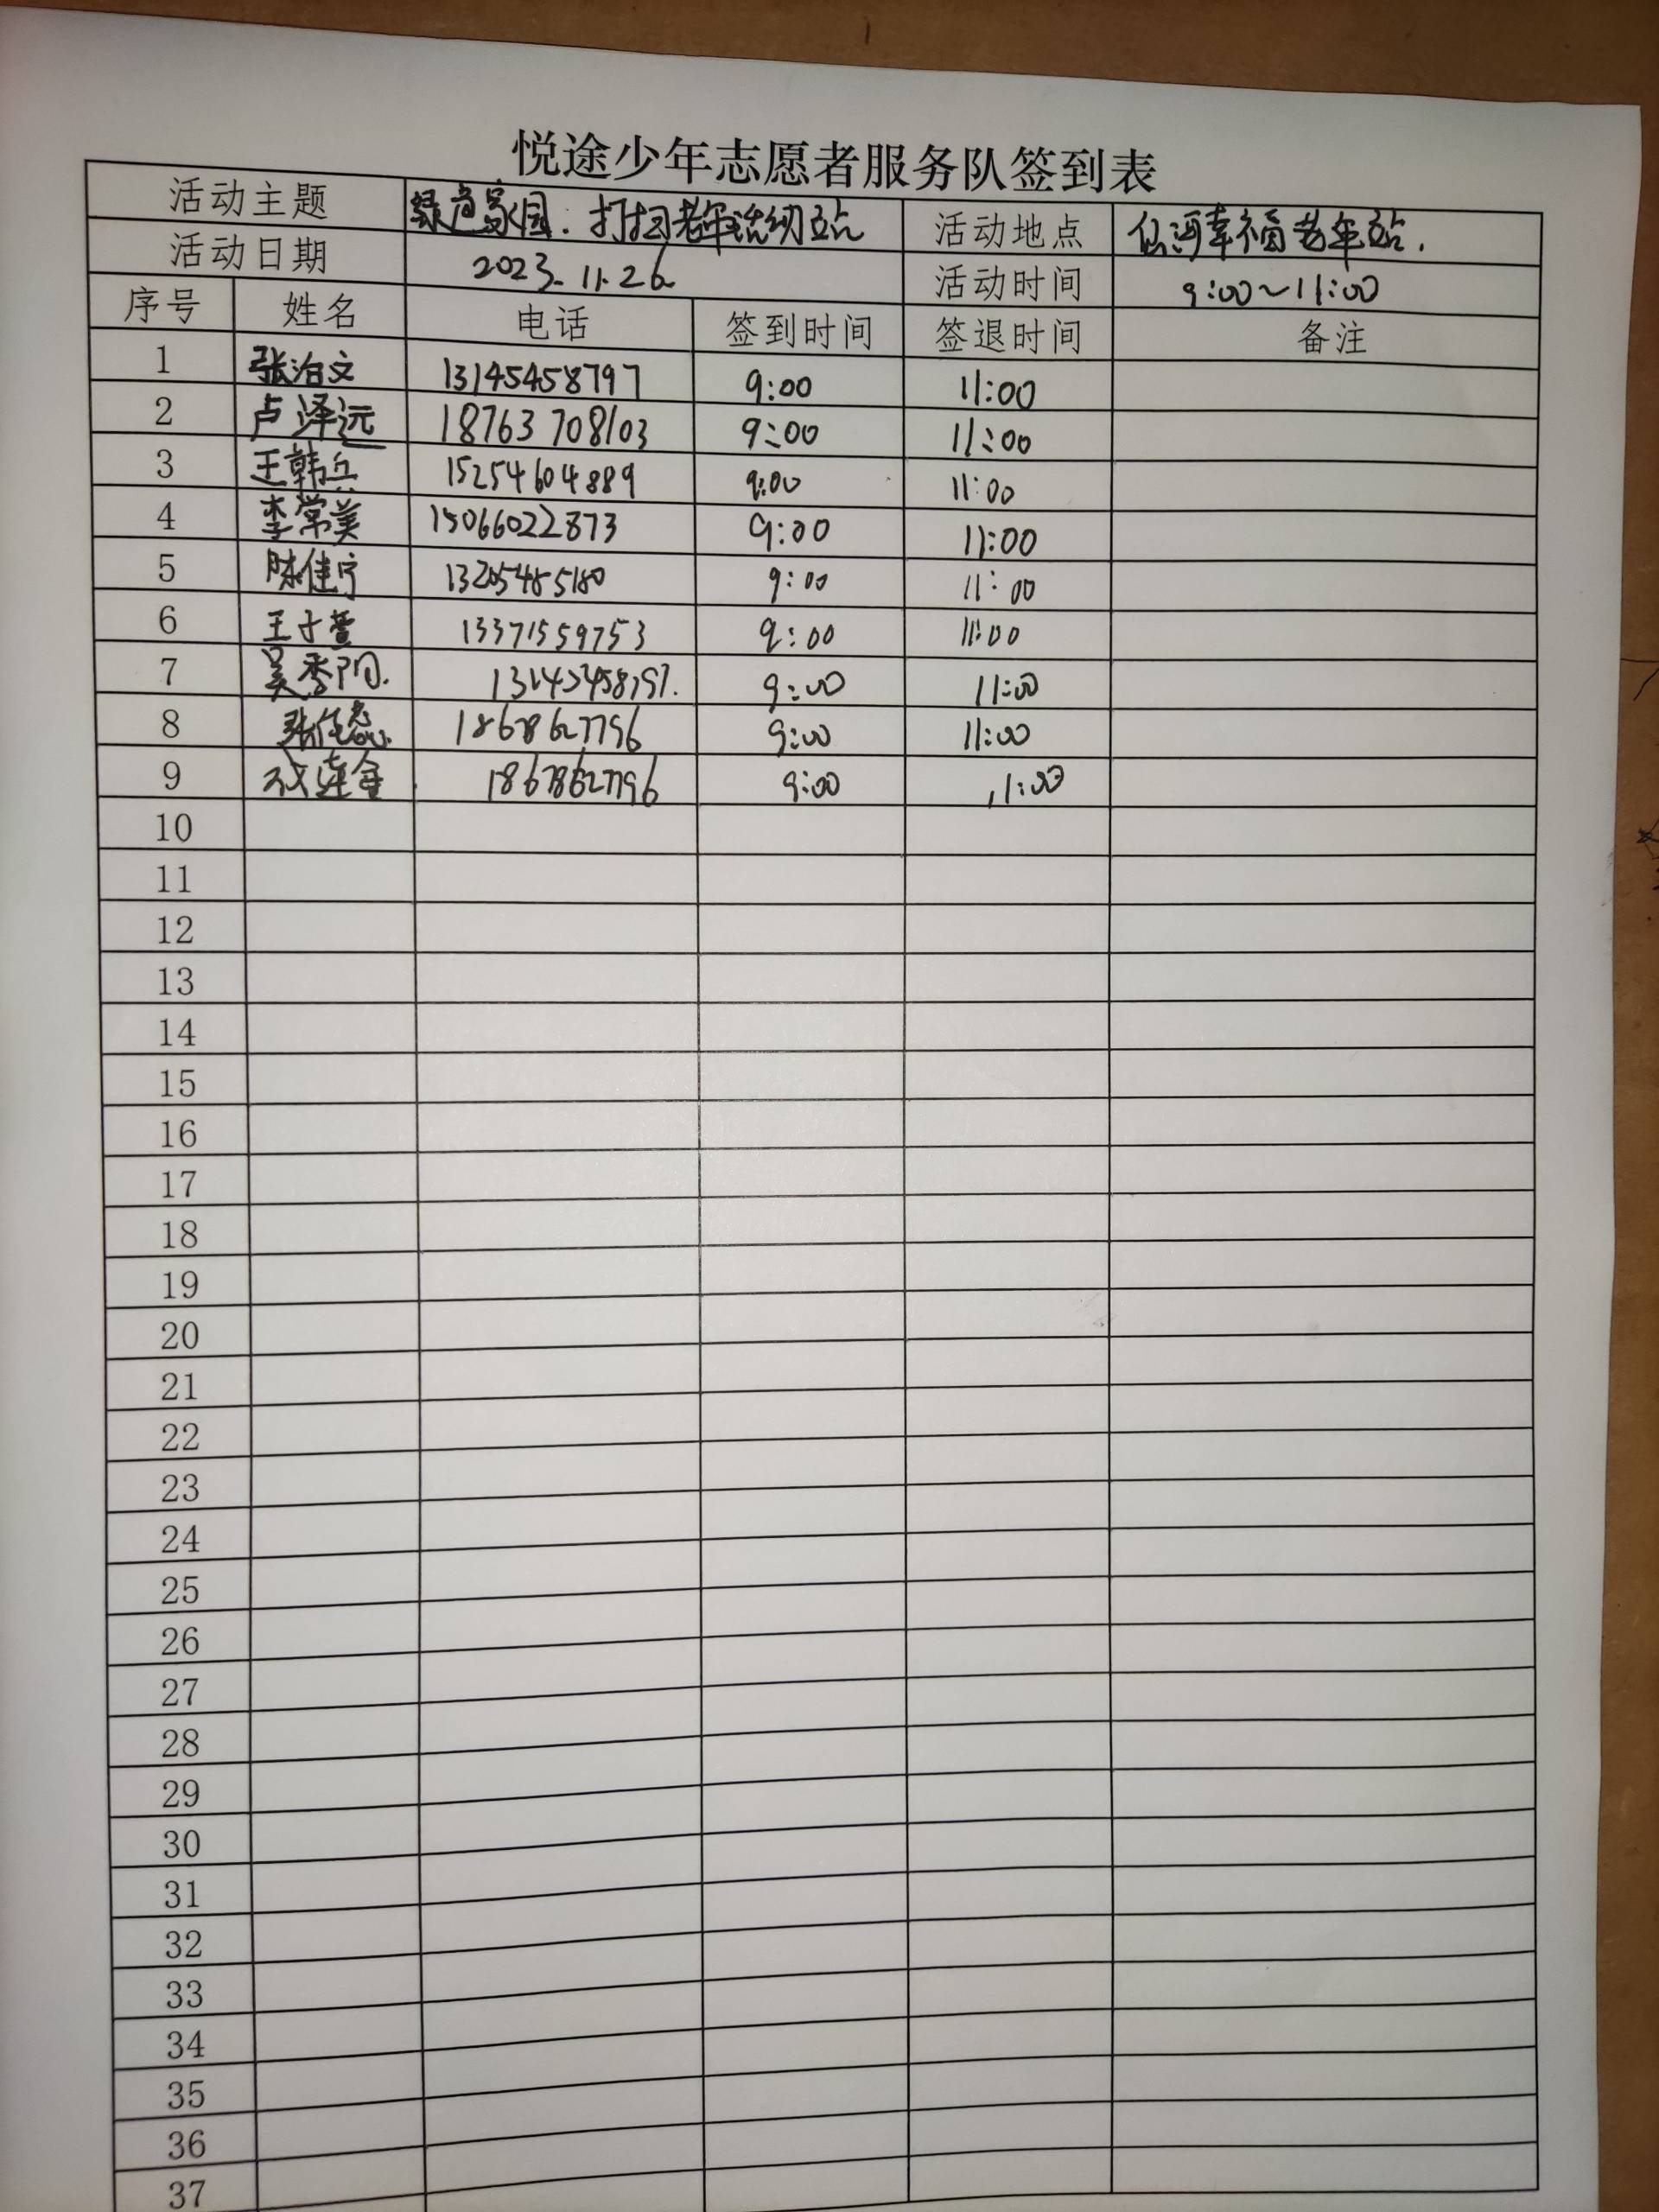 悦途少年志愿者服务队签到表
活动主题 绿色家园：打扫老年活动站 活动地点 仙河幸福老年站.
活动日期 2023.11.26 活动时间 9:00~11:00
序号 姓名 电话 签到时间 签退时间 备注
1 张治文 13145458797 9:00 11:00
2 卢泽远 18763708103 9:00 11:00
3 王韩兵 15254604889 9:00 11:00
4 李常美 15066022873 9:00 11:00
5 陈佳宁 13205485180 9:00 11:00
6 王子萱 13371559753 9:00 11:00
7 吴秀 9:00 11:00
8 18678627796 9:00 11:00
9 连金 18678627796 9:00 11:00
10
11
12
13
14
15
16
17
18
19
20
21
22
23
24
25
26
27
28
29
30
31
32
33
34
35
36
37